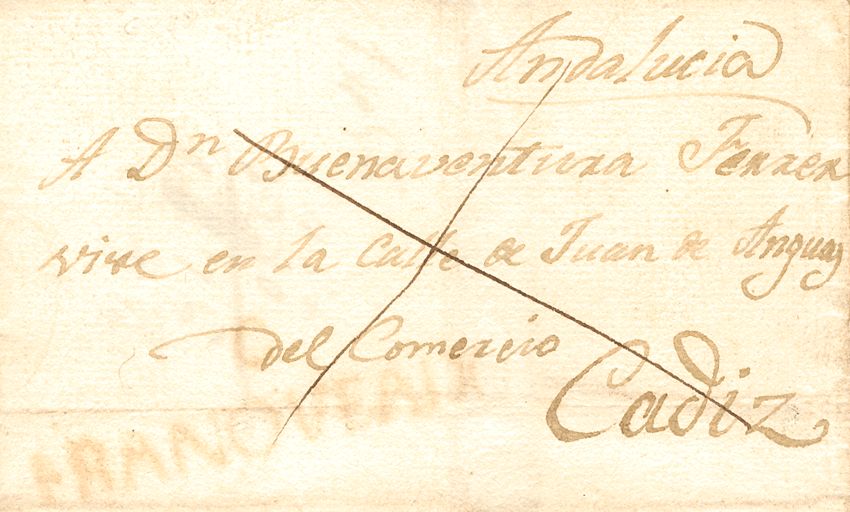 Andalucia
A Dn Buenaventura Ferrer
vive en la Calle de Juan de
del Comercio
Cadiz